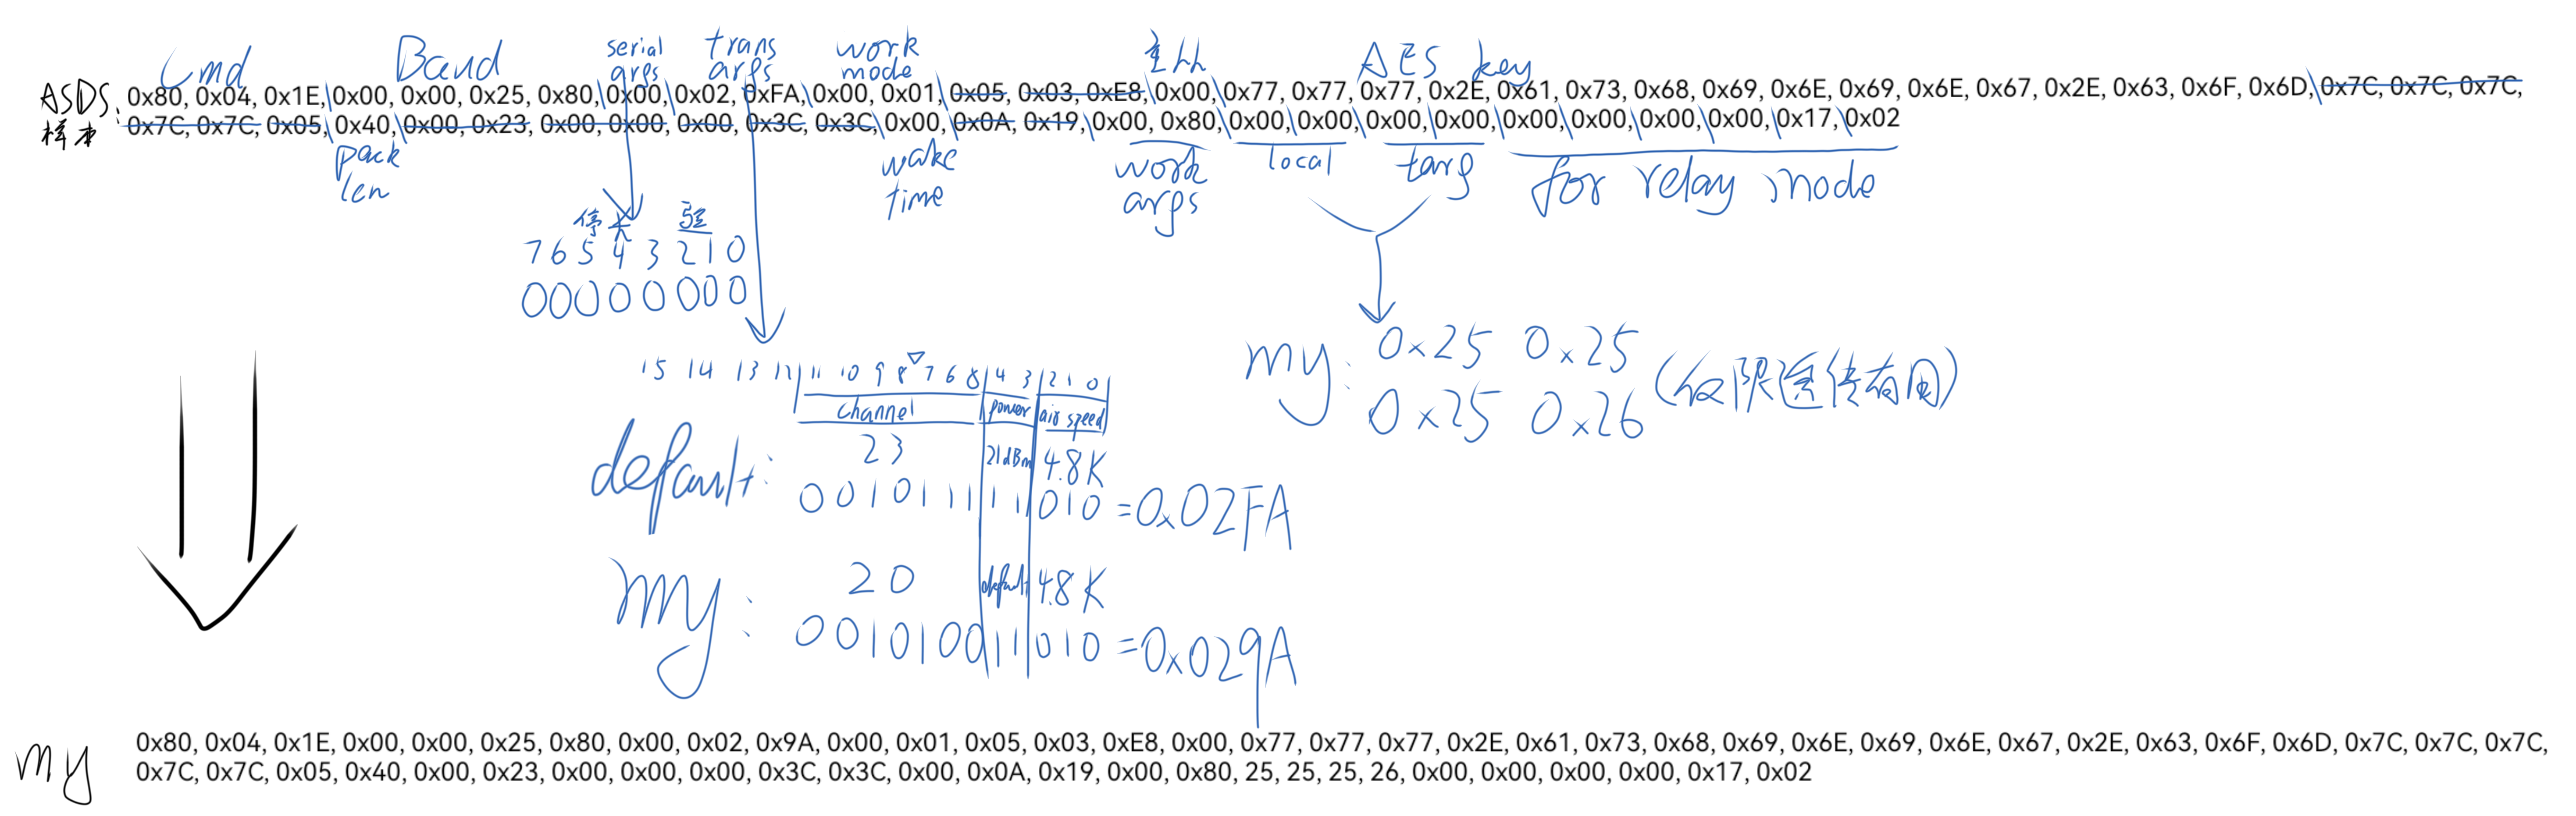 Cmd Baud serial args trans args work mode 主从 AES key
ASDS: 0x80, 0x04, 0x1E,\0x00, 0x00, 0x25, 0x80,\0x00,\0x02, 0xFA,\0x00, 0x01,\0x05, 0x03, 0xE8,\0x00,\0x77, 0x77, 0x77, 0x2E, 0x61, 0x73, 0x68, 0x69, 0x6E, 0x69, 0x6E, 0x67, 0x2E, 0x63, 0x6F, 0x6D,\0x7C, 0x7C, 0x7C,
样本 0x7C, 0x7C, 0x05,\0x40,\0x00, 0x23, 0x00, 0x00, 0x00, 0x3C, 0x3C,\0x00,\0x0A, 0x19,\0x00, 0x80,\0x00,\0x00,\0x00,\0x00,\0x00,\0x00,\0x00,\0x00,\0x17,\0x02
pack len wake time work args local targ for relay mode
停 验
7 6 5 4 3 2 1 0
0 0 0 0 0 0 0 0
15 14 13 12 11 10 9 8 7 6 8 4 3 2 1 0
channel power air speed
default: 23 21dBm 4.8K
0010111 11 010 = 0x02FA
my: 20 default 4.8K
0010100 11 010 = 0x029A
my: 0x25 0x25
0x25 0x26 (仅限透传有用)
my 0x80, 0x04, 0x1E, 0x00, 0x00, 0x25, 0x80, 0x00, 0x02, 0x9A, 0x00, 0x01, 0x05, 0x03, 0xE8, 0x00, 0x77, 0x77, 0x77, 0x2E, 0x61, 0x73, 0x68, 0x69, 0x6E, 0x69, 0x6E, 0x67, 0x2E, 0x63, 0x6F, 0x6D, 0x7C, 0x7C, 0x7C,
0x7C, 0x7C, 0x05, 0x40, 0x00, 0x23, 0x00, 0x00, 0x00, 0x3C, 0x3C, 0x00, 0x0A, 0x19, 0x00, 0x80, 25, 25, 25, 26, 0x00, 0x00, 0x00, 0x00, 0x17, 0x02